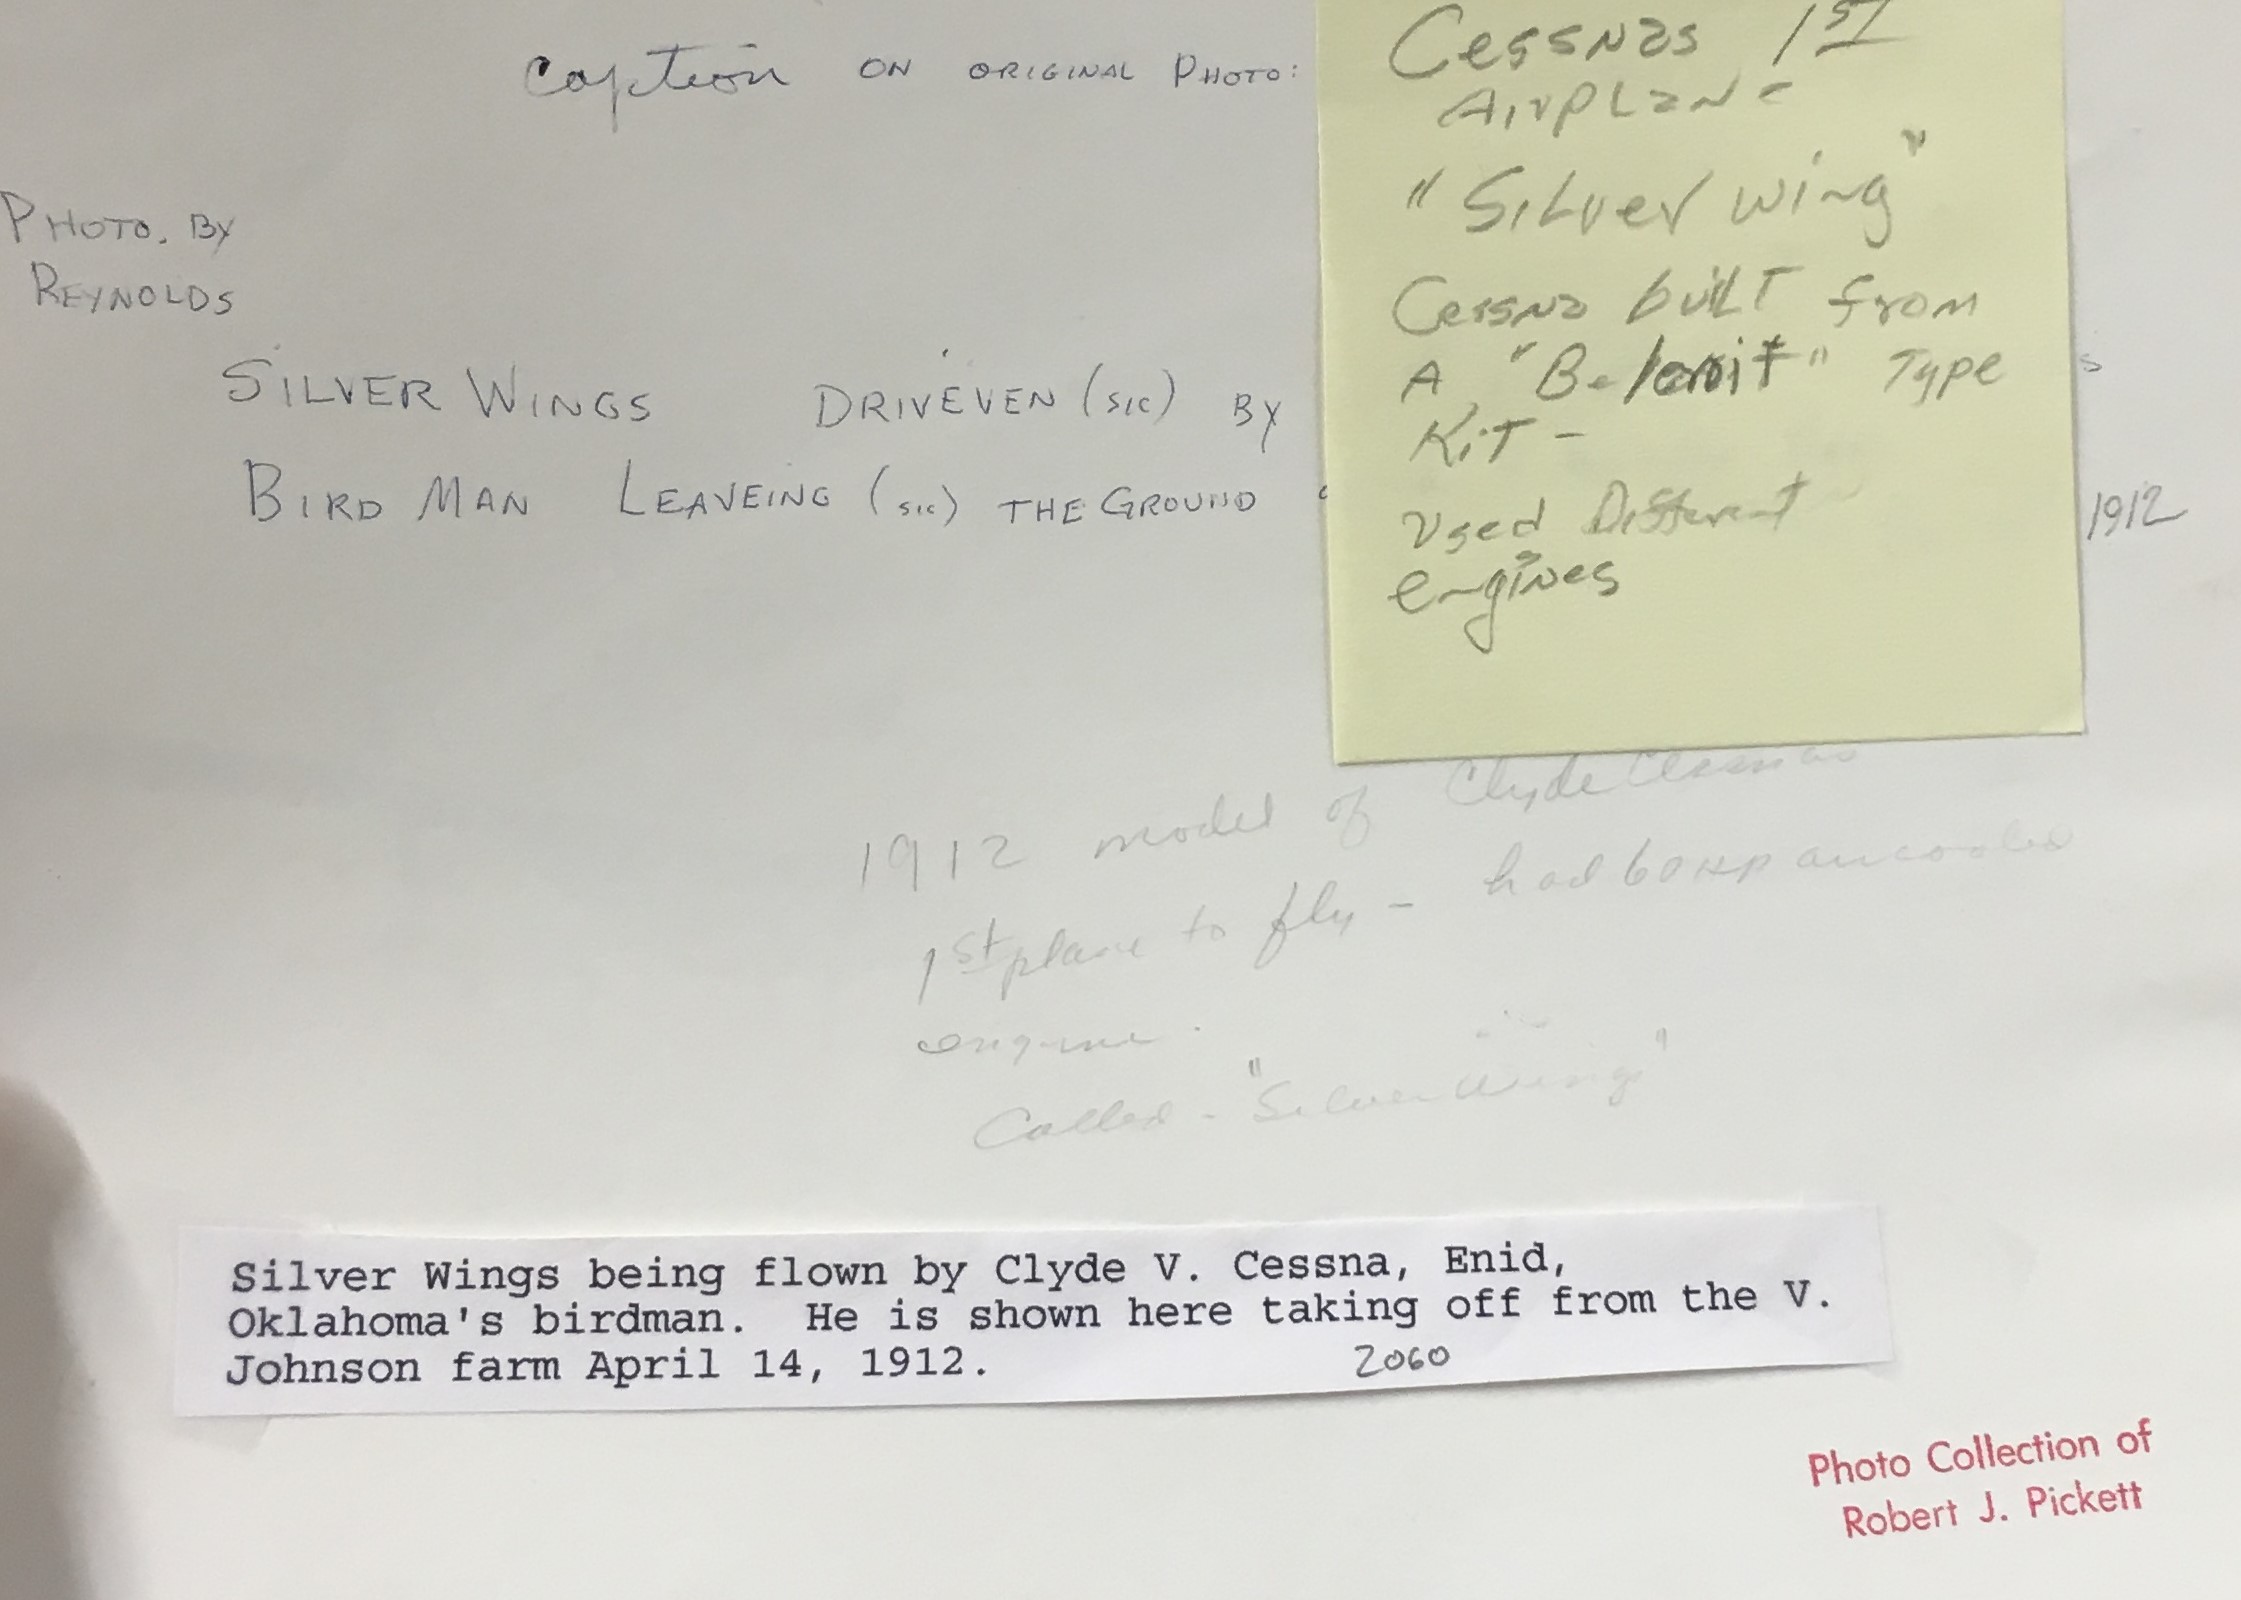 Caption ON ORIGINAL PHOTO:
PHOTO. BY
REYNOLDS
SILVER WINGS DRIVEVEN (SIC) BY
BIRD MAN LEAVEING (SIC) THE GROUND
s
1912
Cessnas 1ST
AirPLane
"SiLver wing"
Cessna buiLT from
A Type
KiT -
Used Different
engines
1912 model of Clyde Cessnas
1st plane to fly - had 60 HP
engine.
Called - "Silver Wing"
Silver Wings being flown by Clyde V. Cessna, Enid,
Oklahoma's birdman. He is shown here taking off from the V.
Johnson farm April 14, 1912. 2060
Photo Collection of
Robert J. Pickett